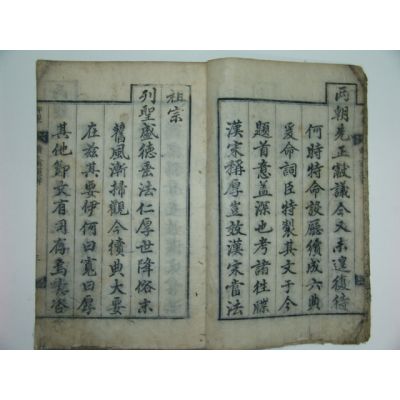 兩朝先正獻議今又未遑復待
何時特命設廳續成六典
爰命詞臣特製其文于今
題首意蓋深也考諸往牒
漢宋稱厚豈效漢宋當法
祖宗
列聖盛德 法仁厚世降俗末
舊風漸掃觀今續典大要
在玆其要伊何曰寬曰厚
其他節文有司存焉嗟咨